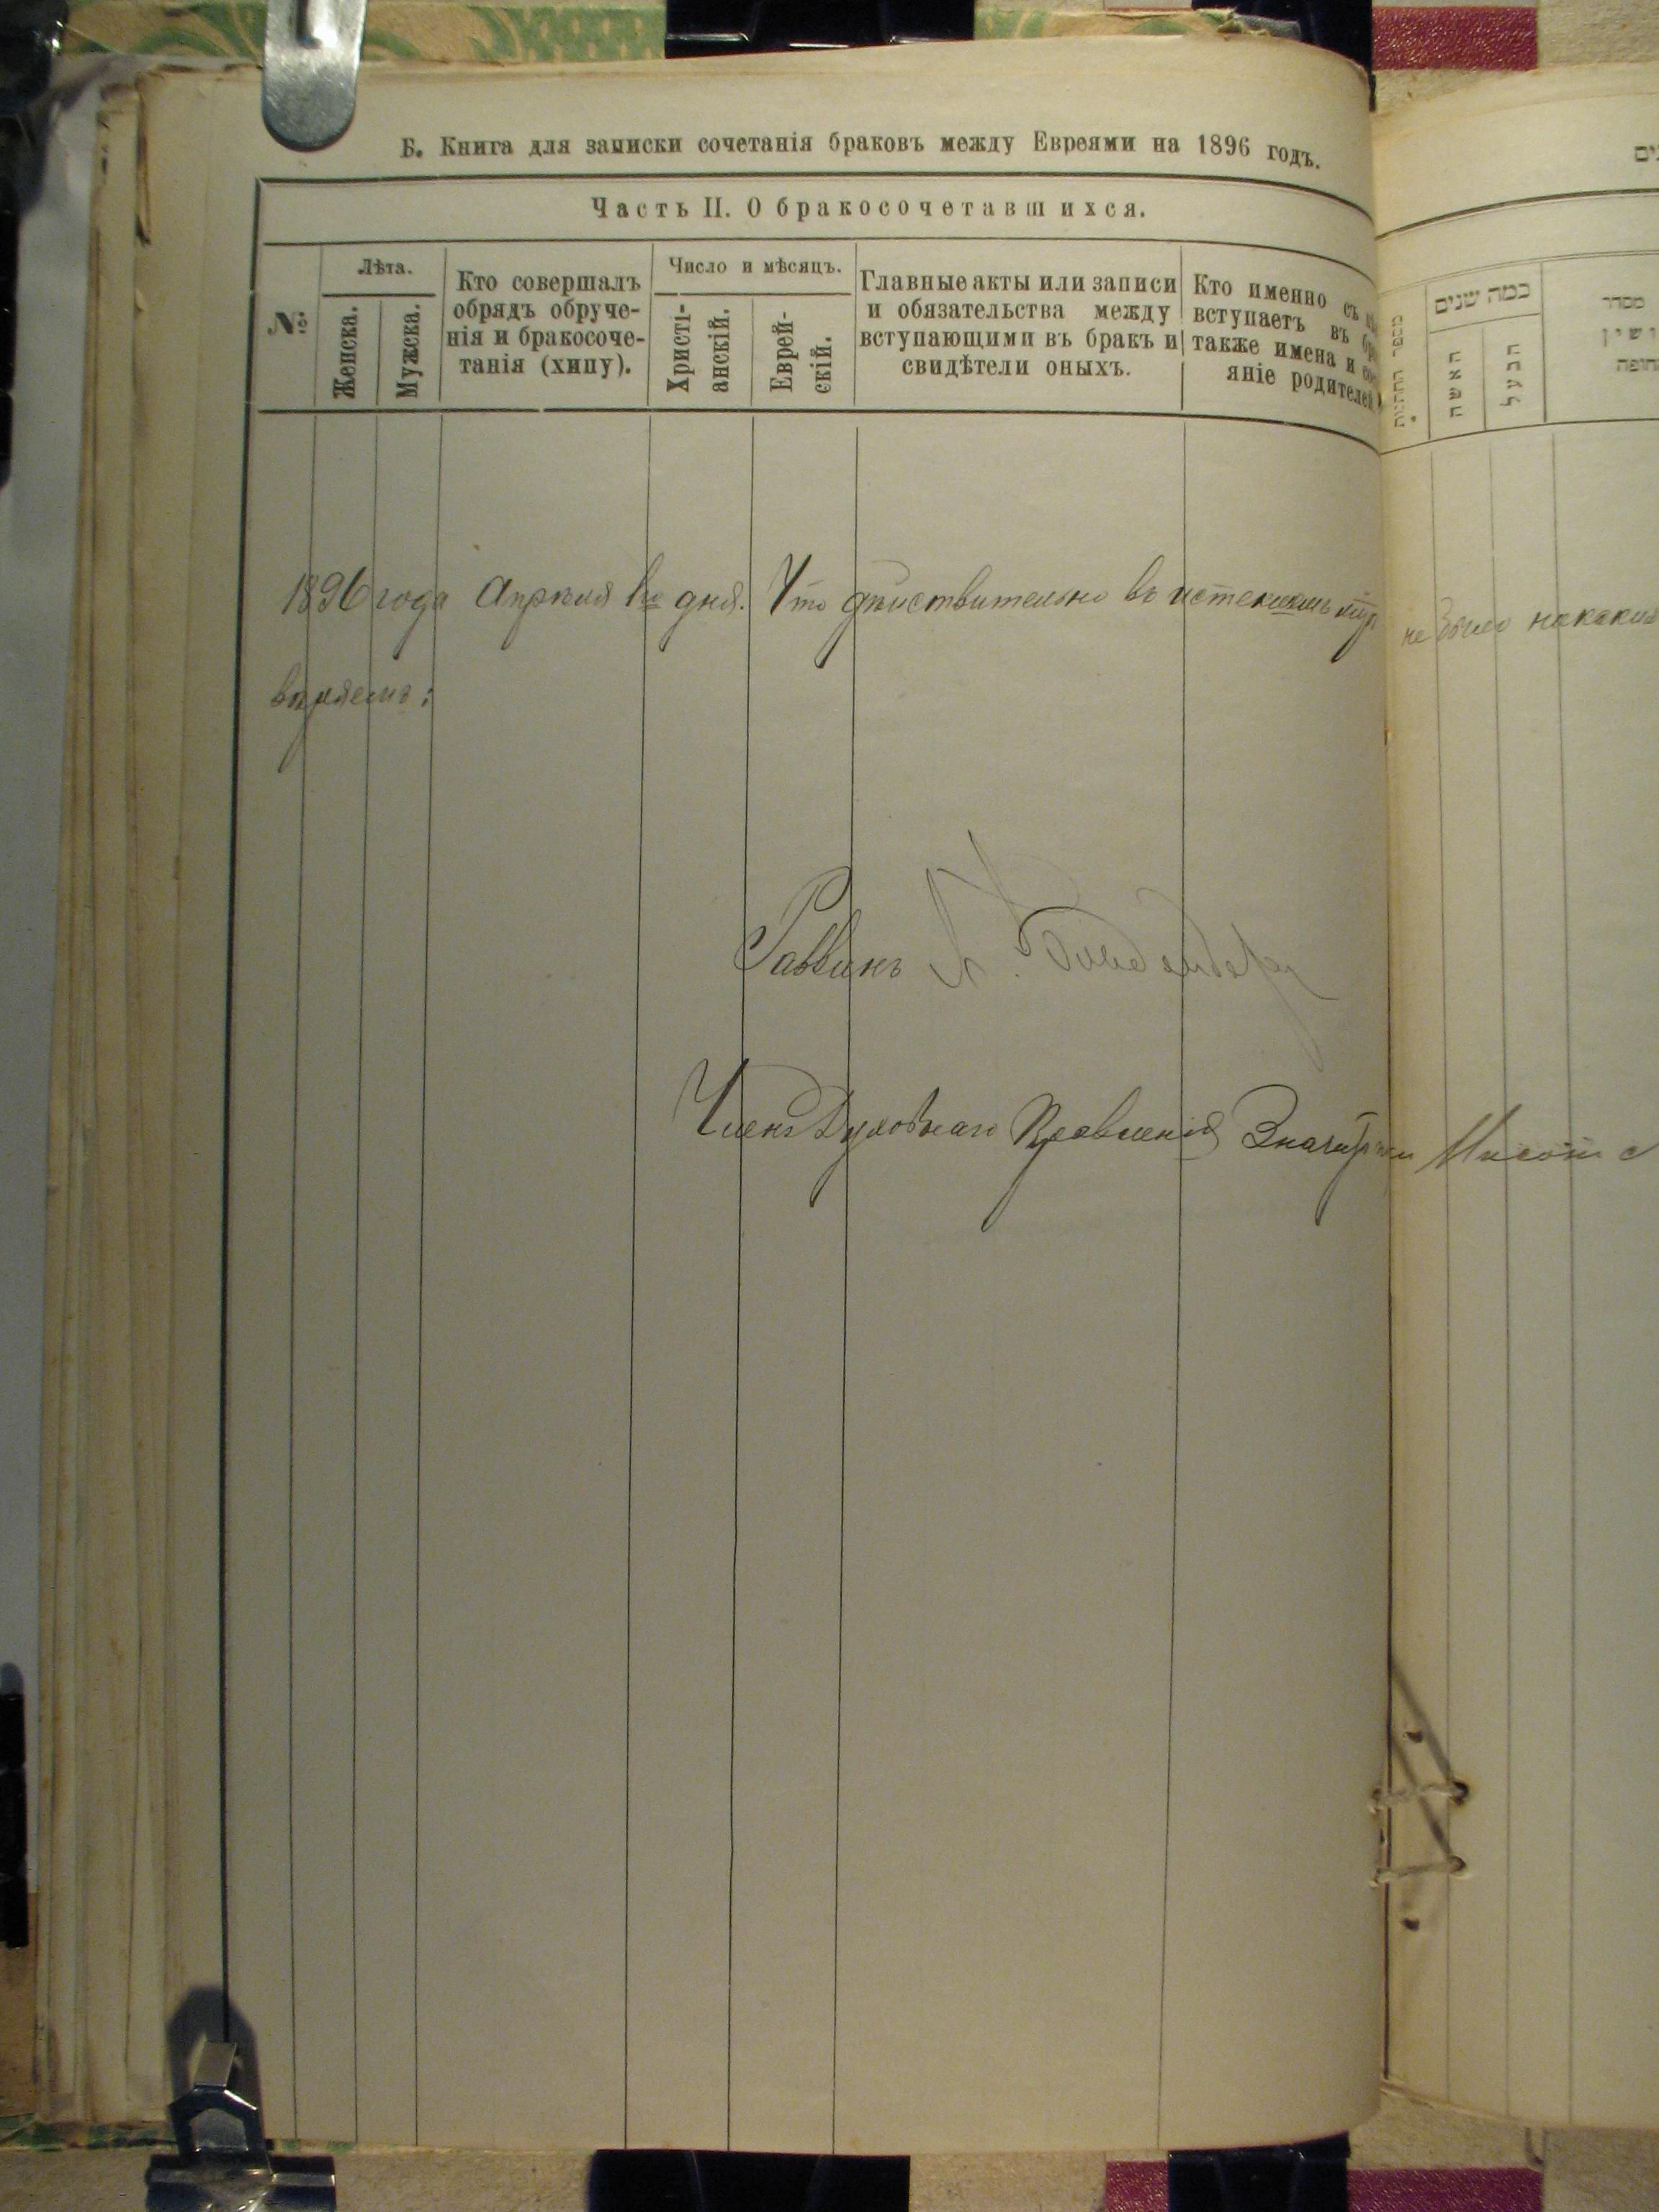 Б. Книга для записки сочетанія браковъ между Евреями на 1896 годъ.
Часть II. О бракосочетавшихся.
№
Лѣта.
Женска.
Мужска.
Кто совершалъ
обрядъ обруче-
нія и бракосоче-
танія (хипу).
Число и мѣсяцъ.
Христі-
анскій.
Еврей-
скій.
Главные акты или записи
и обязательства между
вступающими въ бракъ и
свидѣтели оныхъ.
Кто именно съ
вступаетъ въ
также имена и
яніе родителей
כמה שנים
האשה
הבעל
מסדר
1896 года Апрѣля 1го дня. Что дѣйствительно въ истекшемъ
не было никаких
Раввинъ
Членъ Духовнаго Правленія